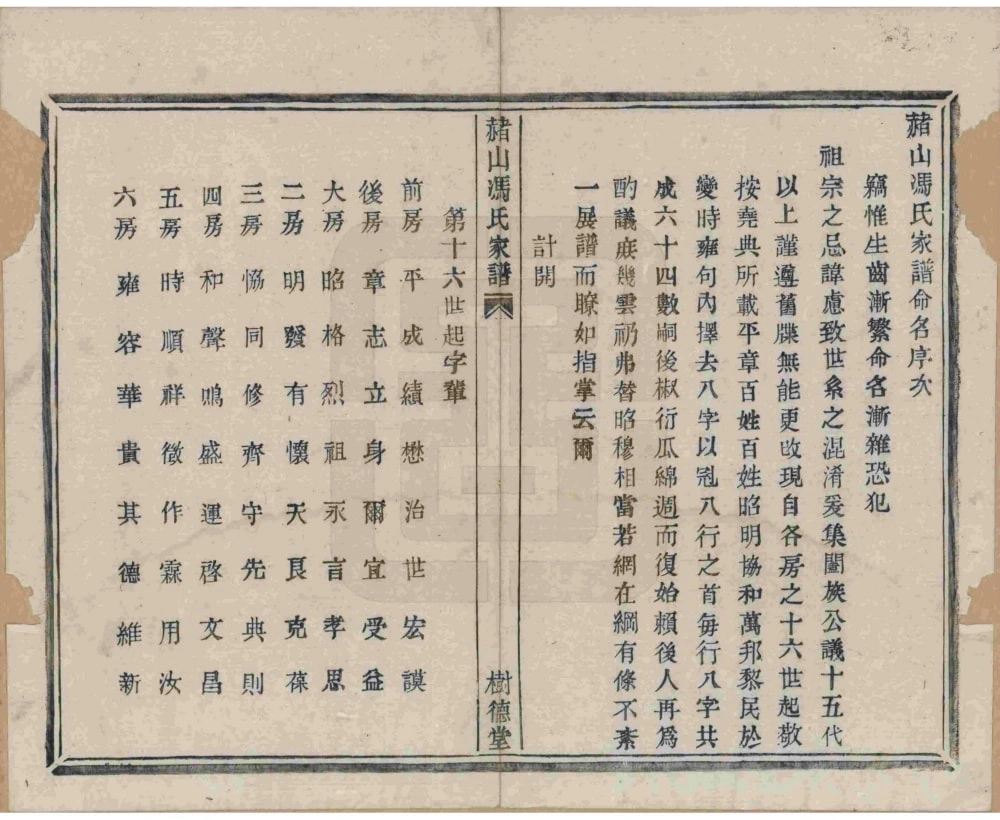 赭山馮氏家譜命名序次
竊惟生齒漸繁命名漸雜恐犯
祖宗之忌諱慮致世系之混淆爰集闔族公議十五代
以上謹遵舊牒無能更改現自各房之十六世起敬
按堯典所載平章百姓百姓昭明協和萬邦黎民於
變時雍句內擇去八字以冠八行之首每行八字共
成六十四數嗣後椒衍瓜綿週而復始賴後人再爲
酌議庶幾雲礽弗替昭穆相當若網在綱有條不紊
一展譜而瞭如指掌云爾
計開
赭山馮氏家譜
樹德堂
第十六世起字輩
前房 平成績懋治世宏謨
後房 章志立身爾宜受益
大房 昭格烈祖永言孝思
二房 明發有懷天良克葆
三房 恊同修齊守先典則
四房 和聲鳴盛運啓文昌
五房 時順祥徵作霖用汝
六房 雍容華貴其德維新